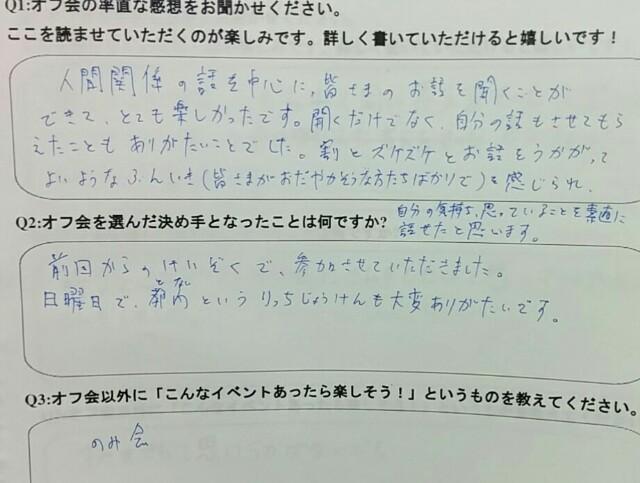 Q1:オフ会の率直な感想をお聞かせください。
ここを読ませていただくのが楽しみです。詳しく書いていただけると嬉しいです！
人間関係の話を中心に、皆さまのお話を聞くことが
できて、とても楽しかったです。聞くだけでなく、自分の話もさせてもら
えたこともありがたいことでした。割とズケズケとお話をうかがって
よいようなふんいき(皆さまがおだやかそうな方たちばかりで)を感じられ、
自分の気持ち、思っていることを素直に
話せたと思います。
Q2:オフ会を選んだ決め手となったことは何ですか?
前回からのけいぞくで、参加させていただきました。
日曜日で、都内というりっちじょうけんも大変ありがたいです。
Q3:オフ会以外に「こんなイベントあったら楽しそう！」というものを教えてください。
のみ会